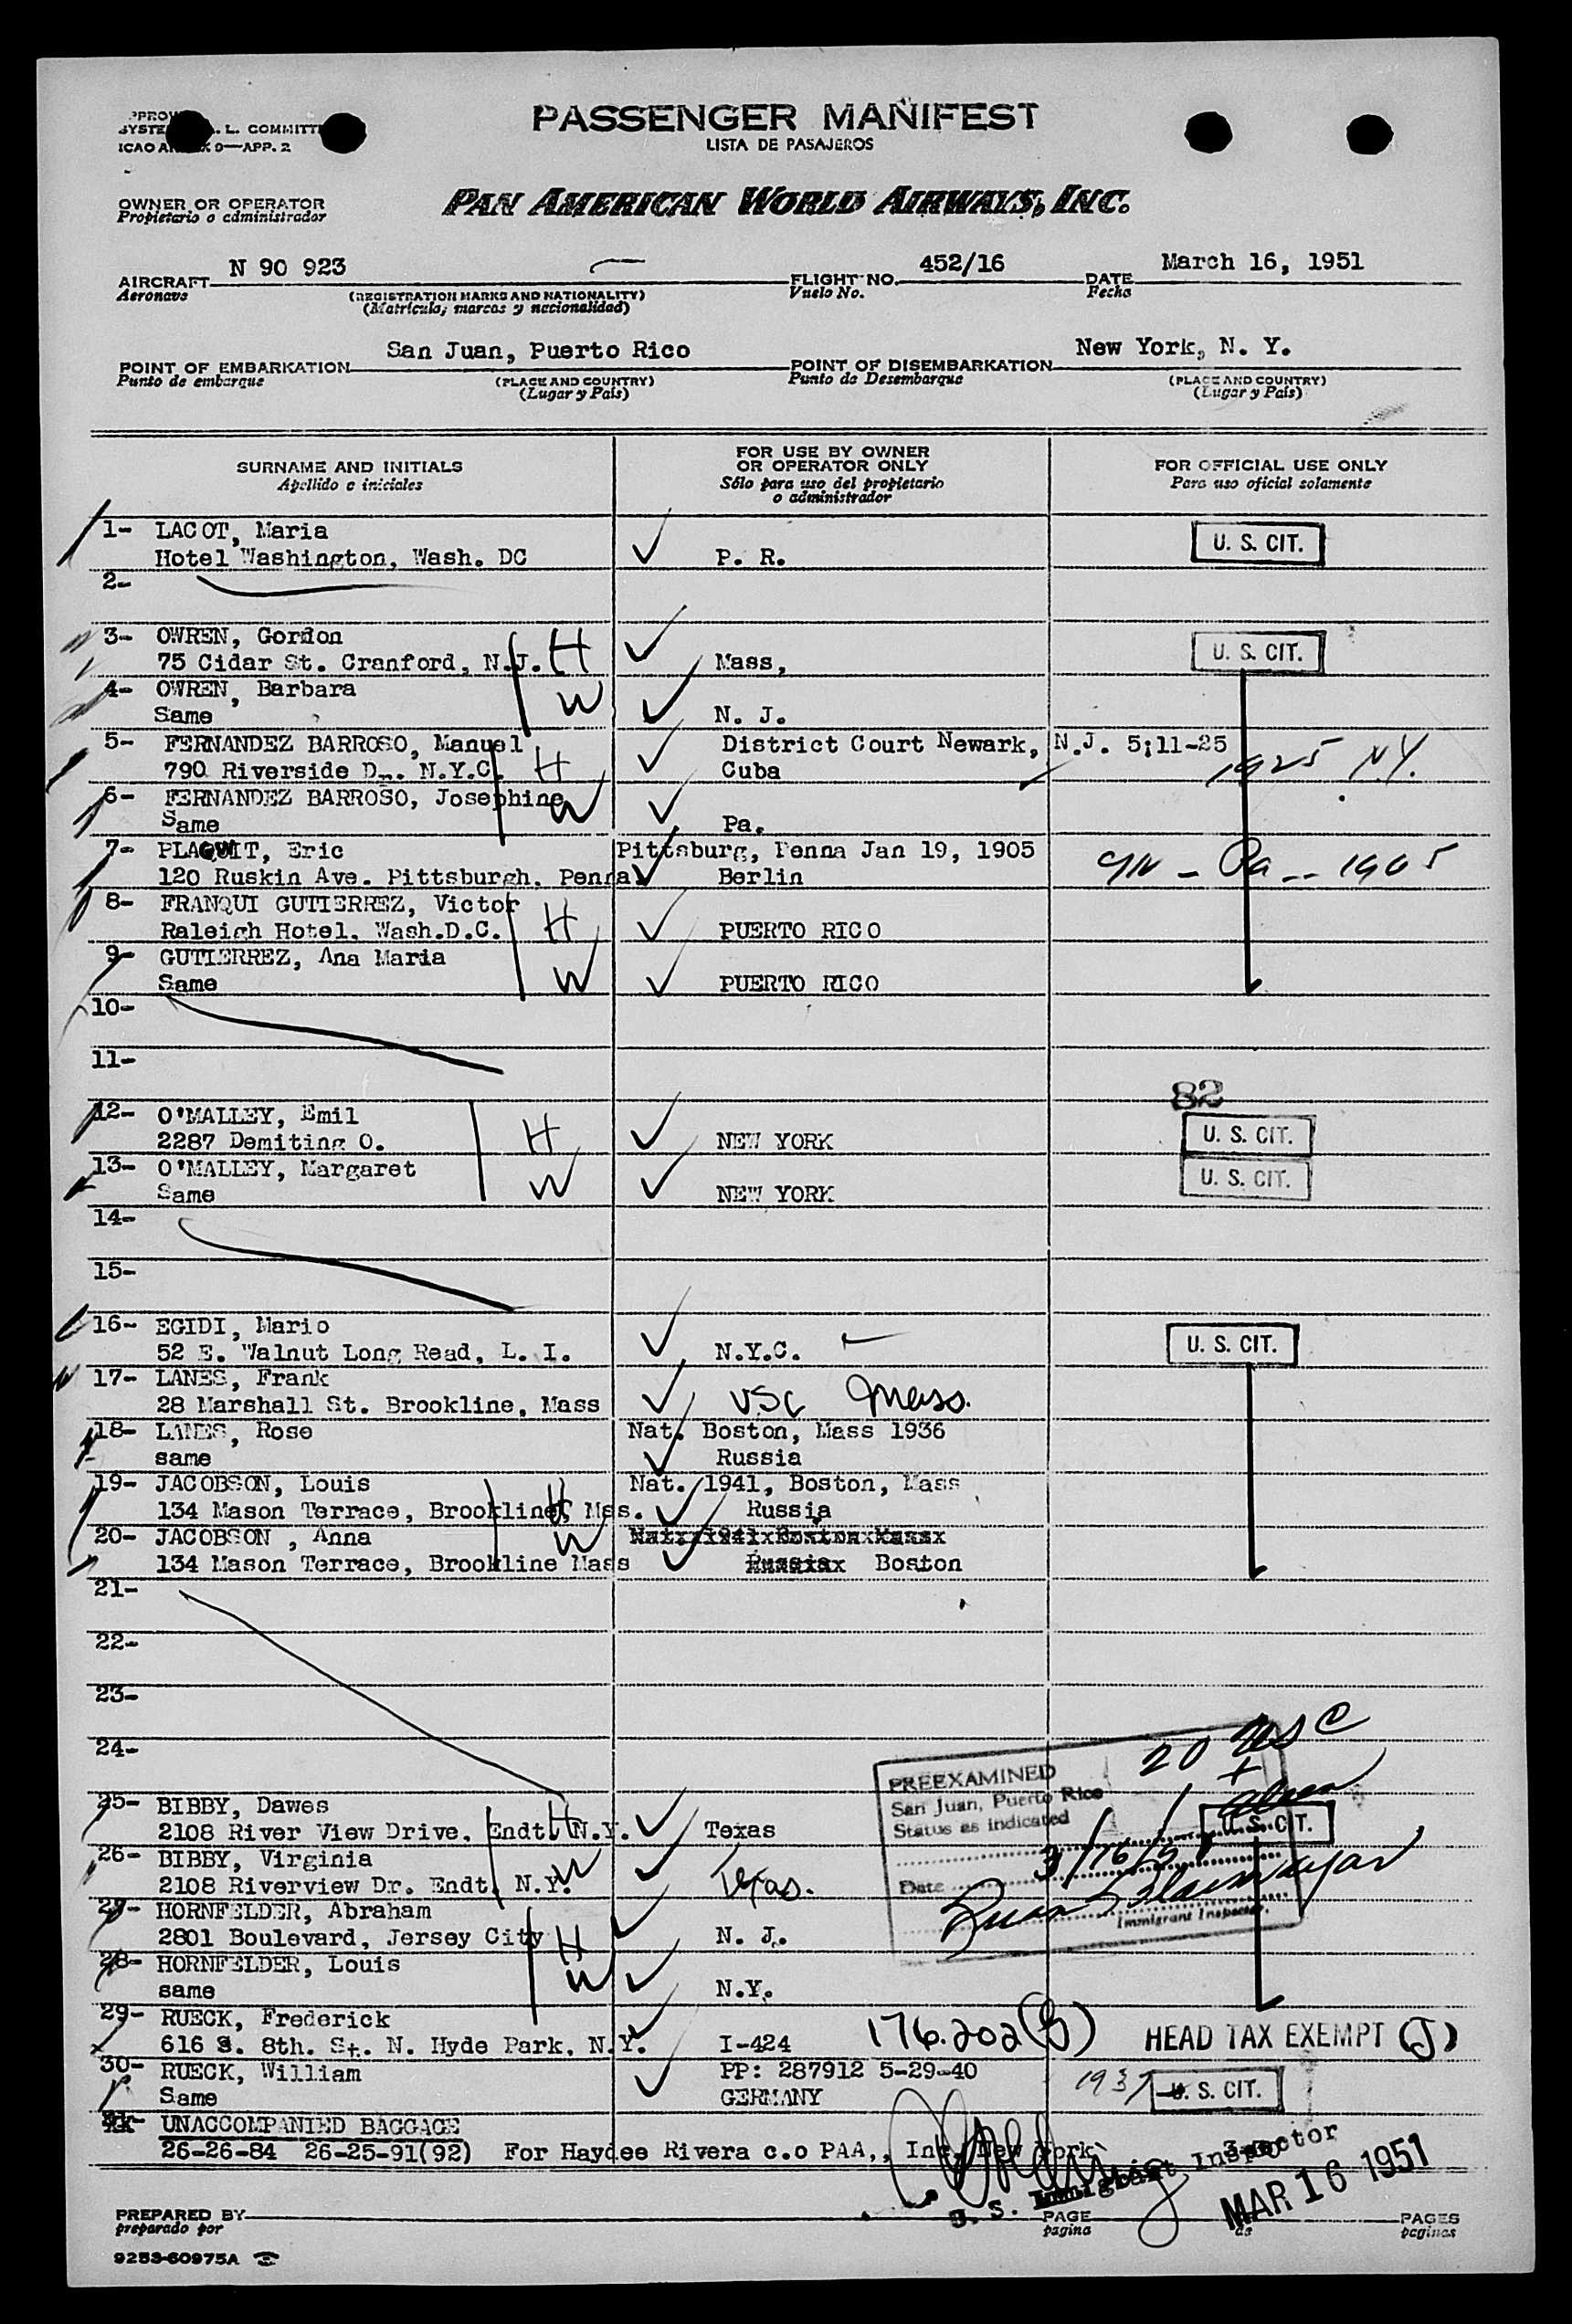 PASSENGER MANIFEST
LISTA DE PASAJEROS
L. COMMITT
ICAO 9—APP. 2
OWNER OR OPERATOR
Propietario o administrador
PAN AMERICAN WORLD AIRWAYS, INC.
AIRCRAFT N 90 923
Aeronave
(REGISTRATION MARKS AND NATIONALITY)
(Matrícula, marcas y nacionalidad)
FLIGHT NO. 452/16
Vuelo No.
DATE March 16, 1951
Fecha
POINT OF EMBARKATION San Juan, Puerto Rico
Punto de embarque
(PLACE AND COUNTRY)
(Lugar y País)
POINT OF DISEMBARKATION New York, N. Y.
Punto de Desembarque
(PLACE AND COUNTRY)
(Lugar y País)
SURNAME AND INITIALS
Apellido e iniciales
FOR USE BY OWNER
OR OPERATOR ONLY
Sólo para uso del propietario
o administrador
FOR OFFICIAL USE ONLY
Para uso oficial solamente
1- LACOT, Maria
Hotel Washington, Wash. DC P. R. U. S. CIT.
2-
3- OWREN, Gordon H
75 Cidar St. Cranford, N.J. Mass, U. S. CIT.
4- OWREN, Barbara W
Same N. J.
5- FERNANDEZ BARROSO, Manuel District Court Newark, N.J. 5;11-25
790 Riverside Dr. N.Y.C. H Cuba 1925 N.Y.
6- FERNANDEZ BARROSO, Josephine W
Same Pa.
7- Eric Pittsburg, Penna Jan 19, 1905
120 Ruskin Ave. Pittsburgh, Penna. Berlin Pa -- 1905
8- FRANQUI GUTIERREZ, Victor H
Raleigh Hotel, Wash.D.C. PUERTO RICO
9- GUTIERREZ, Ana Maria W
Same PUERTO RICO
10-
11-
82
12- O'MALLEY, Emil H
2287 Demiting O. NEW YORK U. S. CIT.
13- O'MALLEY, Margaret W
Same NEW YORK U. S. CIT.
14-
15-
16- EGIDI, Mario
52 E. Walnut Long Read, L. I. N.Y.C. U. S. CIT.
17- LANES, Frank
28 Marshall St. Brookline, Mass USC Mass.
18- LANES, Rose Nat. Boston, Mass 1936
same Russia
19- JACOBSON, Louis Nat. 1941, Boston, Mass
134 Mason Terrace, Brookline, Mss. H Russia
20- JACOBSON , Anna W
134 Mason Terrace, Brookline Mass Boston
21-
22-
23-
24-
20 USC
+
1 alien
PREEXAMINED
San Juan, Puerto Rico
Status as indicated
Date 3/16/51
Immigrant Inspector.
25- BIBBY, Dawes H
2108 River View Drive. Endt. N.Y. Texas U. S. CIT.
26- BIBBY, Virginia W
2108 Riverview Dr. Endt. N.Y. Texas.
27- HORNFELDER, Abraham
2801 Boulevard, Jersey City H N. J.
28- HORNFELDER, Louis W
same N.Y.
29- RUECK, Frederick
616 S. 8th. St. N. Hyde Park, N.Y. I-424 176.202(G) HEAD TAX EXEMPT (J)
30- RUECK, William PP: 287912 5-29-40
Same GERMANY 1937 U. S. CIT.
UNACCOMPANIED BAGGAGE
26-26-84 26-25-91(92) For Haydee Rivera c.o PAA,, Inc. New York
U. S. Immigrant Inspector
MAR 16 1951
PREPARED BY
preparado por
PAGE
página
de
PAGES
páginas
9253-60975A